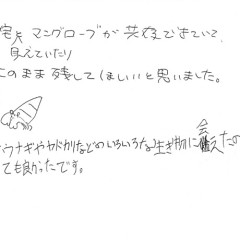 マングローブが共存できていて、
見えていたり
このまま残してほしいと思いました。
ウナギやヤドカリなどのいろいろな生き物に会えたの
ても良かったです。